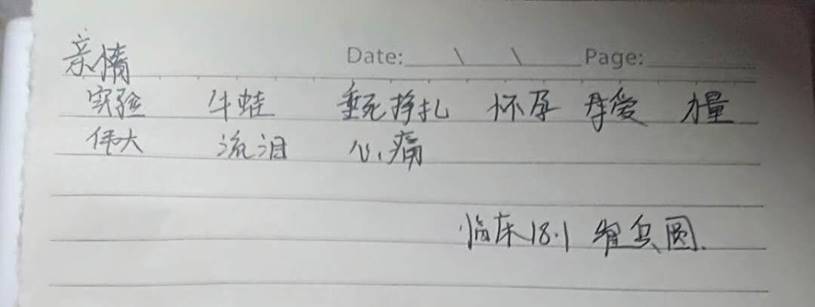 亲情
Date:____\____\____Page:____
实验 牛蛙 垂死挣扎 怀孕 母爱 力量
伟大 流泪 心痛
临床18.1 圆